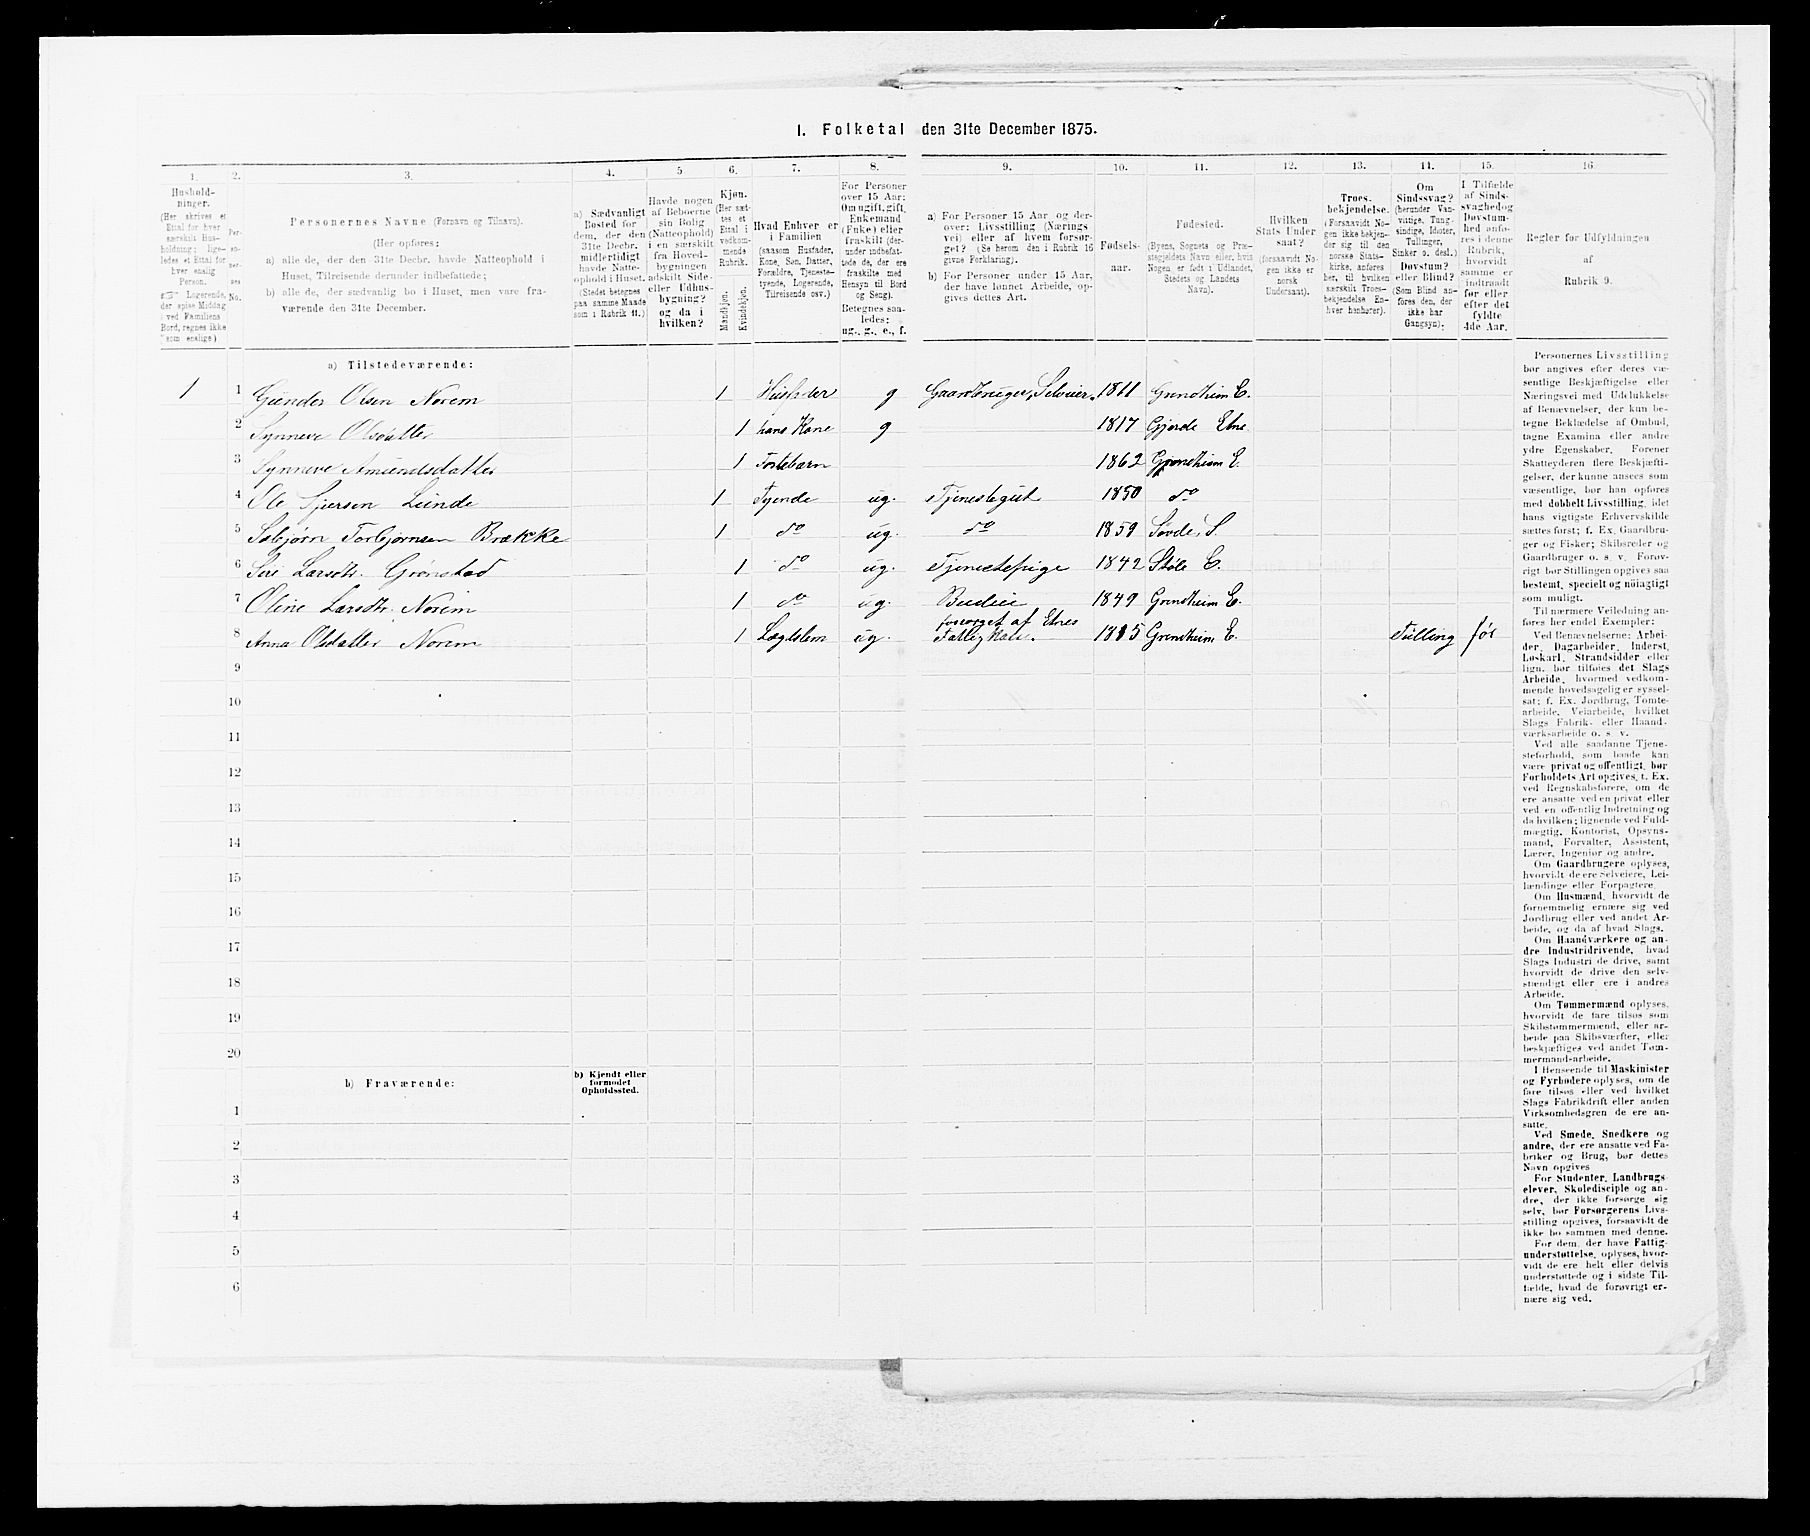 I. Folketal den 31te December 1875.
1. 2. 3. 4. 5 6. 7. 8. 9. 10. 11. 12. 13. 14. 15. 16
Hushold-
ninger.
(Her skrives et
Ettal for hver
særskilt Hus-
holdning; lige-
ledes et Ettal for
hver enslig
Person.
Logerende,
der spise Middag
i ved Familiens
Bord, regnes ikke
som enslige.)
Per-
so-
ner-
nes
No.
Personernes Navne (Fornavn og Tilnavn).
(Her opføres:
a) alle de, der den 31te Decbr. havde Natteophold i
Huset, Tilreisende derunder indbefattede;
b) alle de, der sædvanlig bo i Huset, men vare fra-
værende den 31te December.
a) Sædvanligt
Bosted for
dem, der den
31te Decbr.
midlertidigt
havde Natte-
ophold i Huset.
(Stedet betegnes
paa samme Maade
som i Rubrik 11.)
Havde nogen
af Beboerne
sin Bolig
(Natteophold)
i en særskilt
fra Hoved-
bygningen
adskilt Side-
eller Udhus-
bygning?
og da i
hvilken?
Kjøn.
(Her sæt-
tes et
Ettal i
vedkom-
mende
Rubrik.
Mandkjøn.
Kvindekjøn.
Hvad Enhver er
i Familien
(saasom Husfader,
Kone, Søn, Datter,
Forældre, Tjeneste-
tyende, Logerende,
Tilreisende osv.)
For Personer
over 15 Aar:
Om ugift, gift,
Enkemand
(Enke) eller
fraskilt (der-
under indbefat-
tede de, der ere
fraskilte med
Hensyn til Bord
og Seng).
Betegnes saa-
ledes:
ug., g., e., f.
a) For Personer 15 Aar og der-
over: Livsstilling (Nærings-
vei) eller af hvem forsør-
get? (Se herom den i Rubrik 16
givne Forklaring).
b) For Personer under 15 Aar,
der have lønnet Arbeide, op-
gives dettes Art.
Fødsels-
aar.
Fødested.
(Byens, Sognets og Præ-
stegjeldets Navn eller, hvis
Nogen er født i Udlandet,
Stedets og Landets
Navn).
Hvilken
Stats Under
saat?
(forsaavidt No-
gen ikke er
norsk
Undersaat).
Troes-
bekjendelse.
(Forsaavidt No-
gen ikke bekjen-
der sig til den
norske Stats-
kirke, anføres
her, til hvilken
særskilt Troes-
bekjendelse En-
hver henhører).
Om
Sindssvag?
(herunder Van-
vittige, Tung-
sindige, Idioter,
Tullinger,
Sinker o. desl.)
Døvstum?
eller Blind?
(Som Blind an-
føres den, der
ikke har
Gangsyn);
I Tilfælde
af Sinds-
svaghed og
Døvstum-
hed anfø-
res i denne
Rubrik,
hvorvidt
samme er
indtraadt
før eller
efter det
fyldte
4de Aar.
Regler for Udfyldningen
af
Rubrik 9.
a) Tilstedeværende:
1 1 Gunder Olsen Norem 1 Husfader g Gaardbruger, Selveier. 1811 Grindheim E.
2 Synneve Olsdatter 1 hans Kone g 1817 Gjerde Etne
3 Synneve Amundsdatter 1 Fostebarn 1862 Grindheim E.
4 Ole Sjursen Lunde 1 Tyende ug. Tjenestegut 1850 do
5 Asbjørn Torbjørnsen Brække 1 do ug. do 1859 Søvde, S.
6 Siri Larsdtr. Grønstad 1 do ug. Tjenestepige 1842 Støle E.
7 Oline Larsdtr. Norem 1 do ug. Budeie 1849 Grindheim E.
8 Anna Olsdatter Norem 1 Lægdslem ug. forsørget af Etnes Fattigkas. 1815 Grindheim E. Tulling før
9
10
11
12
13
14
15
16
17
18
19
20
b) Fraværende:
b) Kjendt eller
formodet
Opholdssted.
1
2
3
4
5
6
Personernes Livsstilling
bør angives efter deres væ-
sentlige Beskjæftigelse eller
Næringsvei med Udelukkelse
af Benævnelser, der kun be-
tegne Beklædelse af Ombud,
tagne Examina eller andre
ydre Egenskaber. Forener
Skatteyderen flere Beskjæfti-
gelser, der kunne ansees som
væsentlige, bør han opføres
med dobbelt Livsstilling, idet
hans vigtigste Erhvervskilde
sættes først; f. Ex. Gaardbru-
ger og Fisker; Skibsreder og
Gaardbruger o. s. v. Forøv-
rigt bør Stillingen opgives saa
bestemt, specielt og nøiagtigt
som muligt.
Til nærmere Veiledning an-
føres her endel Exempler:
Ved Benævnelserne: Arbei-
der, Dagarbeider, Inderst,
Løskarl, Strandsidder eller
lign. bør tilføies det Slags
Arbeide, hvormed vedkom-
mende hovedsagelig er syssel-
sat; f. Ex. Jordbrug, Tomte-
arbeide, Veiarbeide, hvilket
Slags Fabrik- eller Haand-
værksarbeide o. s v.
Ved alle saadanne Tjene-
steforhold, som baade kan
være privat og offentligt, bør
Forholdets Art opgives, t. Ex.
ved Regnskabsførere, om de
ere ansatte ved en privat eller
ved en offentlig Indretning og
da hvilken; lignende ved Fuld-
mægtig, Kontorist, Opsyns-
mand, Forvalter, Assistent,
Lærer, Ingeniør og andre.
Om Gaardbrugere oplyses,
hvorvidt de ere Selveiere, Lei-
lændinge eller Forpagtere.
Om Husmænd, hvorvidt de
fornemmelig ernære sig ved
Jordbrug eller ved andet Ar-
beide, og da af hvad Slags.
Om Haandværkere og an-
dre Industridrivende, hvad
Slags Industri de drive, samt
hvorvidt de drive den selv-
stændigt eller ere i andres
Arbeide.
Om Tømmermænd oplyses,
hvorvidt de fare tilsøs som
Skibstømmermænd, eller ar-
beide paa Skibsværfter, eller
beskjæftiges ved andet Tøm-
mermandsarbeide.
I Henseende til Maskinister
og Fyrbødere oplyses, om de
fare tilsøs eller ved hvilket
Slags Fabrikdrift eller anden
Virksomhedsgren de ere an-
satte.
Ved Smede, Snedkere og
andre, der ere ansatte ved Fa-
briker og Brug, bør dettes
Navn opgives
For Studenter, Landbrugs-
elever, Skoledisciple og an-
dre, der ikke forsørge sig
selv, bør Forsørgerens Livs-
stilling opgives, forsaavidt de
ikke bo sammen med denne.
For dem, der have Fattig-
understøttelse, oplyses, hvor-
vidt de ere helt eller delvis
understøttede og i sidste Til-
fælde, hvad de forøvrigt er-
nære sig ved.